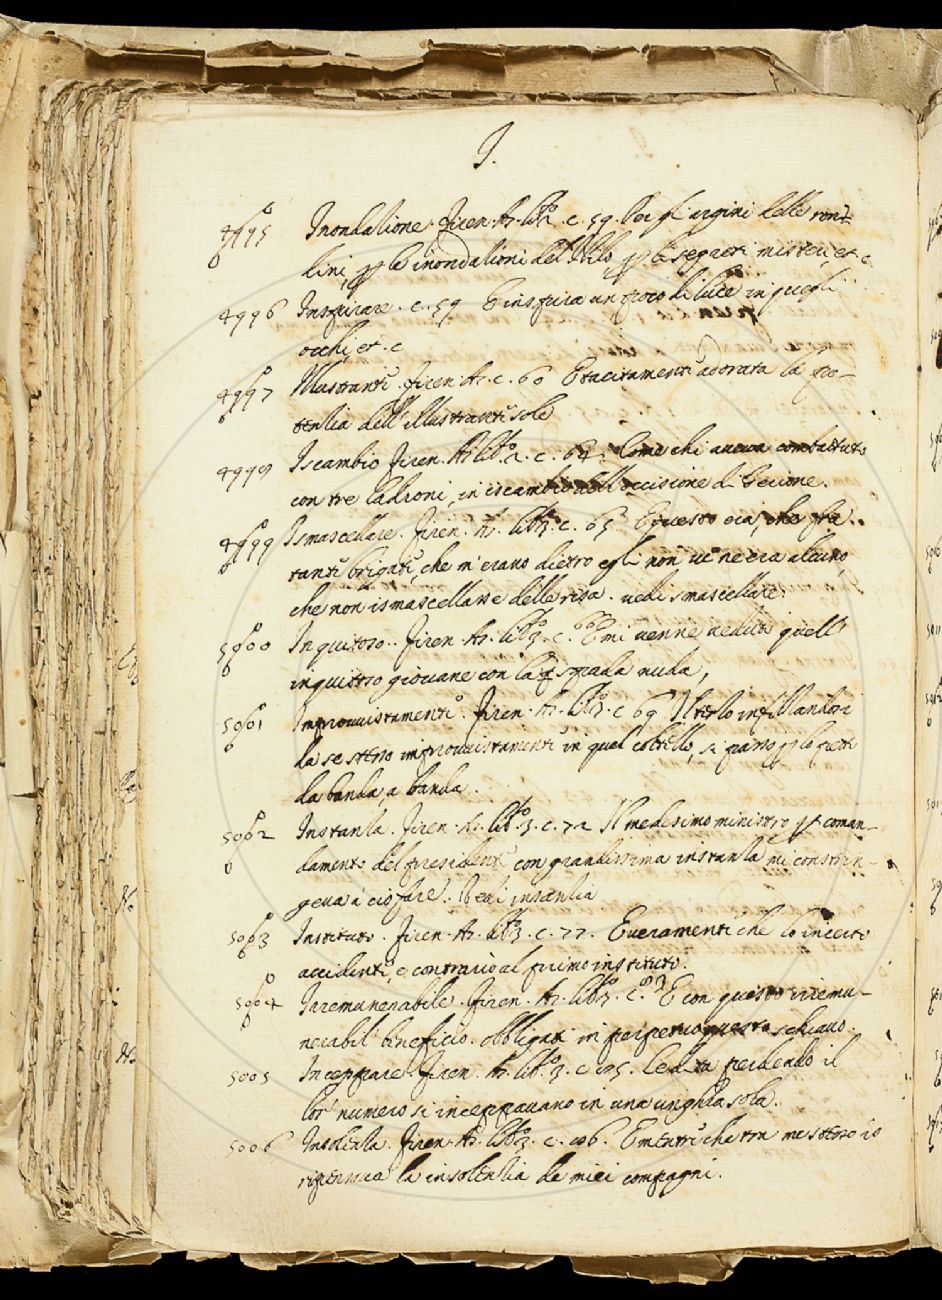 I.
4995 Inondatione. Firen. As. lib. 2. c. 59. Per gl'argini delle ron-
dini, p le inondationi del Nilo, p li segreti misteri, et c
4996 Inspirare. c. 59 E inspira un poco di luce in quegli
occhi, et. c
4997 Illustrante. Firen. As. c. 60 E tacitamente adorata la po-
tentia dell'illustrante sole
4998 Iscambio Firen. As. lib. 2. c. 64. Come chi aveva combattuto
con tre ladroni, in iscambio dell'occisione di Gerione.
4999 Ismascellare. Firen. As. lib. 3. c. 65. E questo era, che fra
tante brigate, che m'erano dietro egli non ve ne era alcuno,
che non ismascellasse delle risa. vedi smascellare.
5000 Inquitoso. Firen. As. lib. 3. c. 66 E mi venne veduto quell'
inquitoso giovane con la spada nuda,
5001 Improvvistamente. Firen. As. lib. 3. c 69 Il tristo infillandosi
da se stesso improvvistamente in quel coltello, si passò p lo petto
da banda, a banda.
5002 Instanza. Firen. As. lib. 3. c. 72 Il medesimo ministro p coman-
damento del presidente con grandissima instanza mi constrin-
geva à ciò fare. Vedi instantia
5003 Instituto. Firen. As. lib. 3. c. 77. E veramente che lo incerto
accidente, e contrario al primo instituto.
5004 Inremunerabile. Firen. As. lib. 3. c. E con questo irremu-
nerabil beneficio. obbligati in perpetuo questo schiavo.
5005 Inceppare. Firen. As. lib. 3. c. Le dita perdendo il
lor numero si inceppavano in una unghia sola.
5006 Insolenza. Firen. As. lib. 3. c. E mentre che tra me stesso io
ripenneva la insolentia de miei compagni.